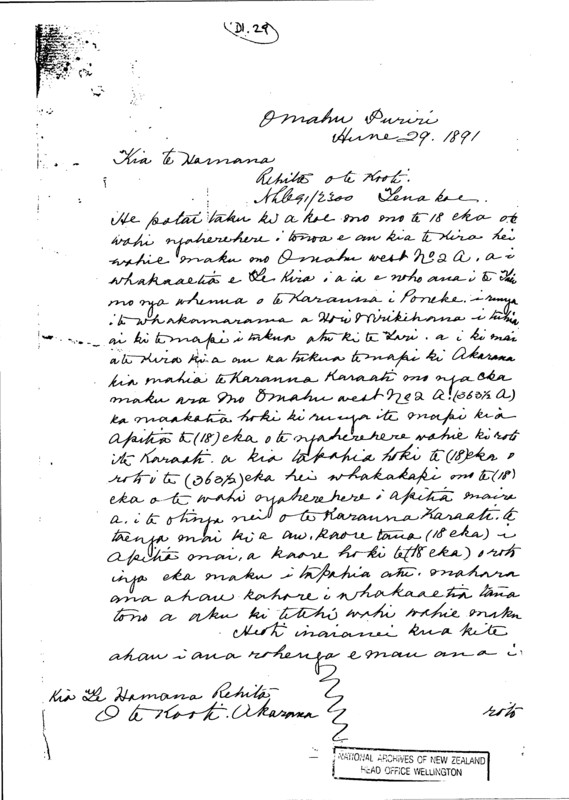 D1.29
Omahu Puriri
Hune 29. 1891
Kia te Hamana
Rehita o te Kooti.
NLC 91/2300 Tena koe.
He patai taku ki a koe mo mo te 18 eka o te
wahi ngaherehere i tonoa e au kia te Kira hei
wahie maku mo Omahu west No 2 A, a i
whakaaetia e Te Kira i a ia e noho ana i te
mo nga whenua o te Karauna i Poneke. i runga
i te whakamarama a Hori i tuhia
ai ki te mapi i tukua atu ki te. a i ki mai
a te Kira ki a au ka tukua te mapi ki Akarana
kia mahia te Karauna Karaati mo nga eka
maku ara mo Omahu west No 2 A. (363½ A)
ka maakatia hoki ki runga i te mapi kia
Apitia te (18) eka o te ngaherehere wahie ki roto
i te Karaati. a kia tapahia hoki te (18) eka o
roto i te (363½) eka hei whakakapi mo te (18)
eka o te wahi ngaherehere i apitia maira
a. i te otinga nei o te Karauna Karaati. te
taenga mai ki a au, kaore taua (18 eka) i
Apitia mai, a kaore hoki te (18 eka) o roto
i nga eka maku i tapahia atu. mahara
ana ahau kahore i whakaaetia taua
tono a aku ki tetehi wahi wahie maku
Heoti inaianei kua kite
ahau i ana rohenga e mau ana i
roto
Kia Te Hamana Rehita
O te Kooti. Akarana
NATIONAL ARCHIVES OF NEW ZEALAND
HEAD OFFICE WELLINGTON